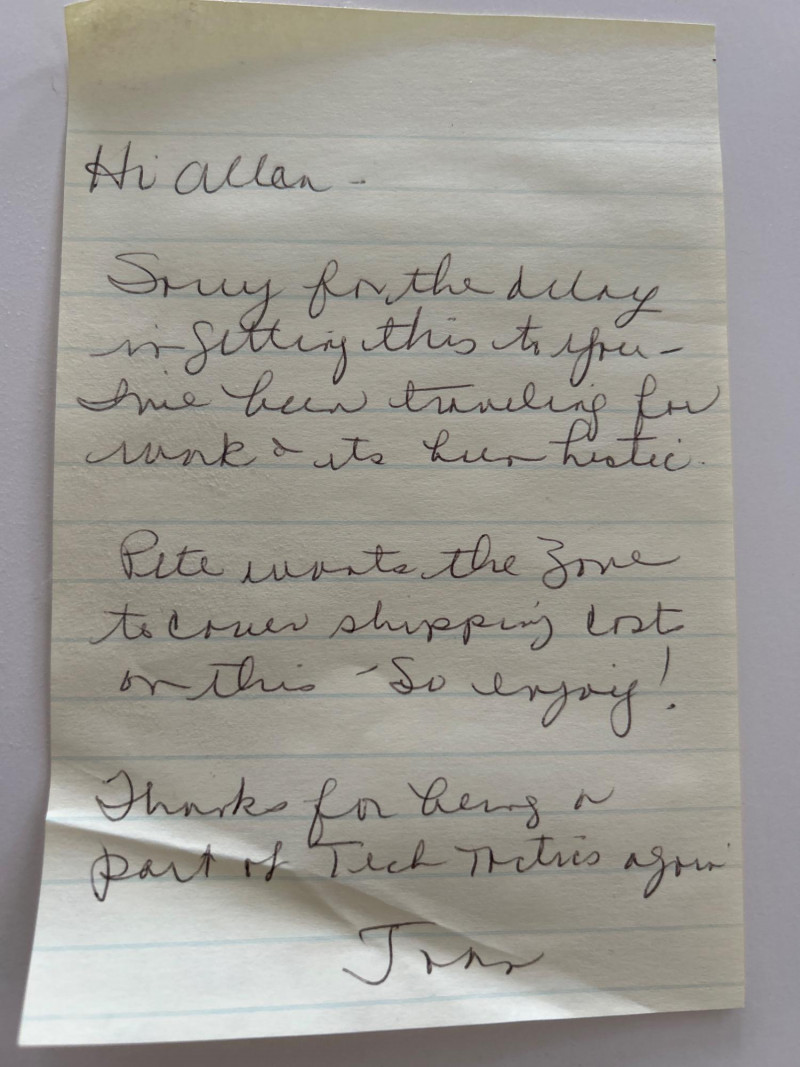 Hi Allan -
Sorry for the delay
in getting this to you -
I've been traveling for
work & its been hectic.
Pete wants the Zone
to cover shipping cost
on this - So enjoy!
Thanks for being a
part of Tech Tactics again